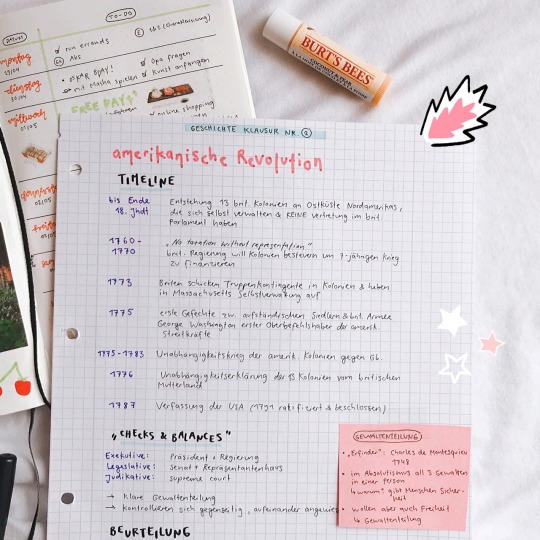 TO-DO
DATUM
run errands
Abs
Opa fragen
mit Masha spielen
Kunst anfangen
FREE DAY
online shopping
montag
29/04
dienstag
30/04
mittwoch
01/05
02/05
03/05
BURT'S BEES
GESCHICHTE KLAUSUR NR. 2
amerikanische Revolution
TIMELINE
bis Ende Entstehung 13 brit. Kolonien an Ostküste Nordamerikas,
18. Jhdt die sich selbst verwalten & KEINE Vertretung im brit.
Parlament haben
1760- „No taxation without representation"
1770 brit. Regierung will Kolonien besteuern um 7-jährigen Krieg
zu finanzieren
1773 Briten schicken Truppenkontingente in Kolonien & heben
in Massachusetts Selbstverwaltung auf
1775 erste Gefechte zw. aufständischen Siedlern & brit. Armee
George Washington erster Oberbefehlshaber der amerik.
Streitkräfte
1775-1783 Unabhängigkeitskrieg der amerik. Kolonien gegen Gb.
1776 Unabhängigkeitserklärung der 13 Kolonien vom britischen
Mutterland
1787 Verfassung der USA (1791 ratifiziert & beschlossen)
„CHECKS & BALANCES"
Exekutive: Präsident + Regierung
Legislative: Senat + Repräsentantenhaus
Judikative: supreme court
→ klare Gewaltenteilung
→ kontrollieren sich gegenseitig, aufeinander angewies
BEURTEILUNG
GEWALTENTEILUNG
• „Erfinder": Charles de Montesquieu
1748
• im Absolutismus all 3 Gewalten
in einer Person
↳ warum? gibt Menschen Sicher-
heit
• wollen aber auch Freiheit
↳ Gewaltenteilung